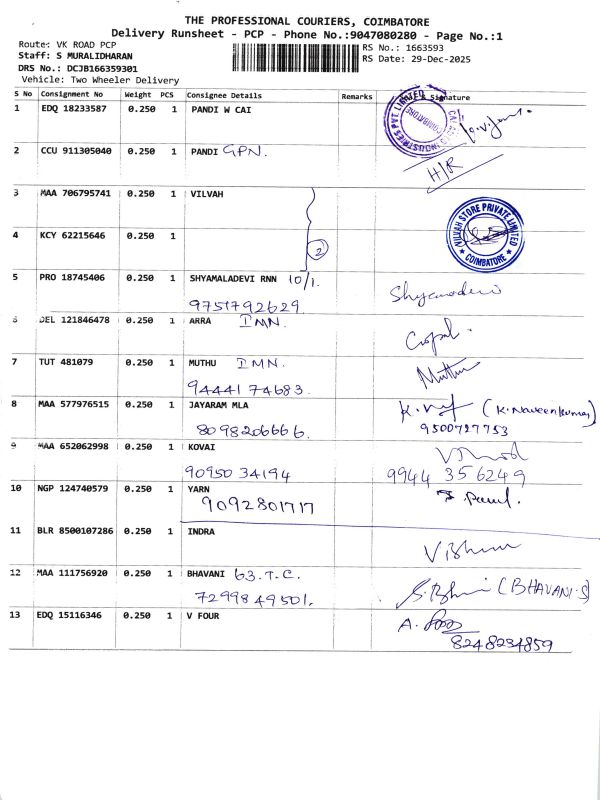 THE PROFESSIONAL COURIERS, COIMBATORE
Delivery Runsheet - PCP - Phone No.:9047080280 - Page No.:1
Route: VK ROAD PCP
RS No.: 1663593
Staff: S MURALIDHARAN
RS Date: 29-Dec-2025
DRS No.: DCJB166359301
Vehicle: Two Wheeler Delivery
S No Consignment No Weight PCS Consignee Details Remarks & Signature
1 EDQ 18233587 0.250 1 PANDI W CAI
INDUSTRIES PVT. LIMITED COIMBATORE
2 CCU 911305040 0.250 1 PANDI GPN.
H/R
3 MAA 706795741 0.250 1 VILVAH
VILVAH STORE PRIVATE LIMITED COIMBATORE
4 KCY 62215646 0.250 1 2
5 PRO 18745406 0.250 1 SHYAMALADEVI RNN 10/1. Shyamadevi
9751792629
6 DEL 121846478 0.250 1 ARRA IMN. Gopal.
7 TUT 481079 0.250 1 MUTHU IMN. Muthu
94441 74683.
8 MAA 577976515 0.250 1 JAYARAM MLA (K. Naveenkumar)
8098206666. 9500727753
9 MAA 652062998 0.250 1 KOVAI
90950 34194 9944 356249
10 NGP 124740579 0.250 1 YARN
9092801717
11 BLR 8500107286 0.250 1 INDRA
12 MAA 111756920 0.250 1 BHAVANI 63.T.C. (BHAVANI.S)
7299849501.
13 EDQ 15116346 0.250 1 V FOUR A.
8248234859